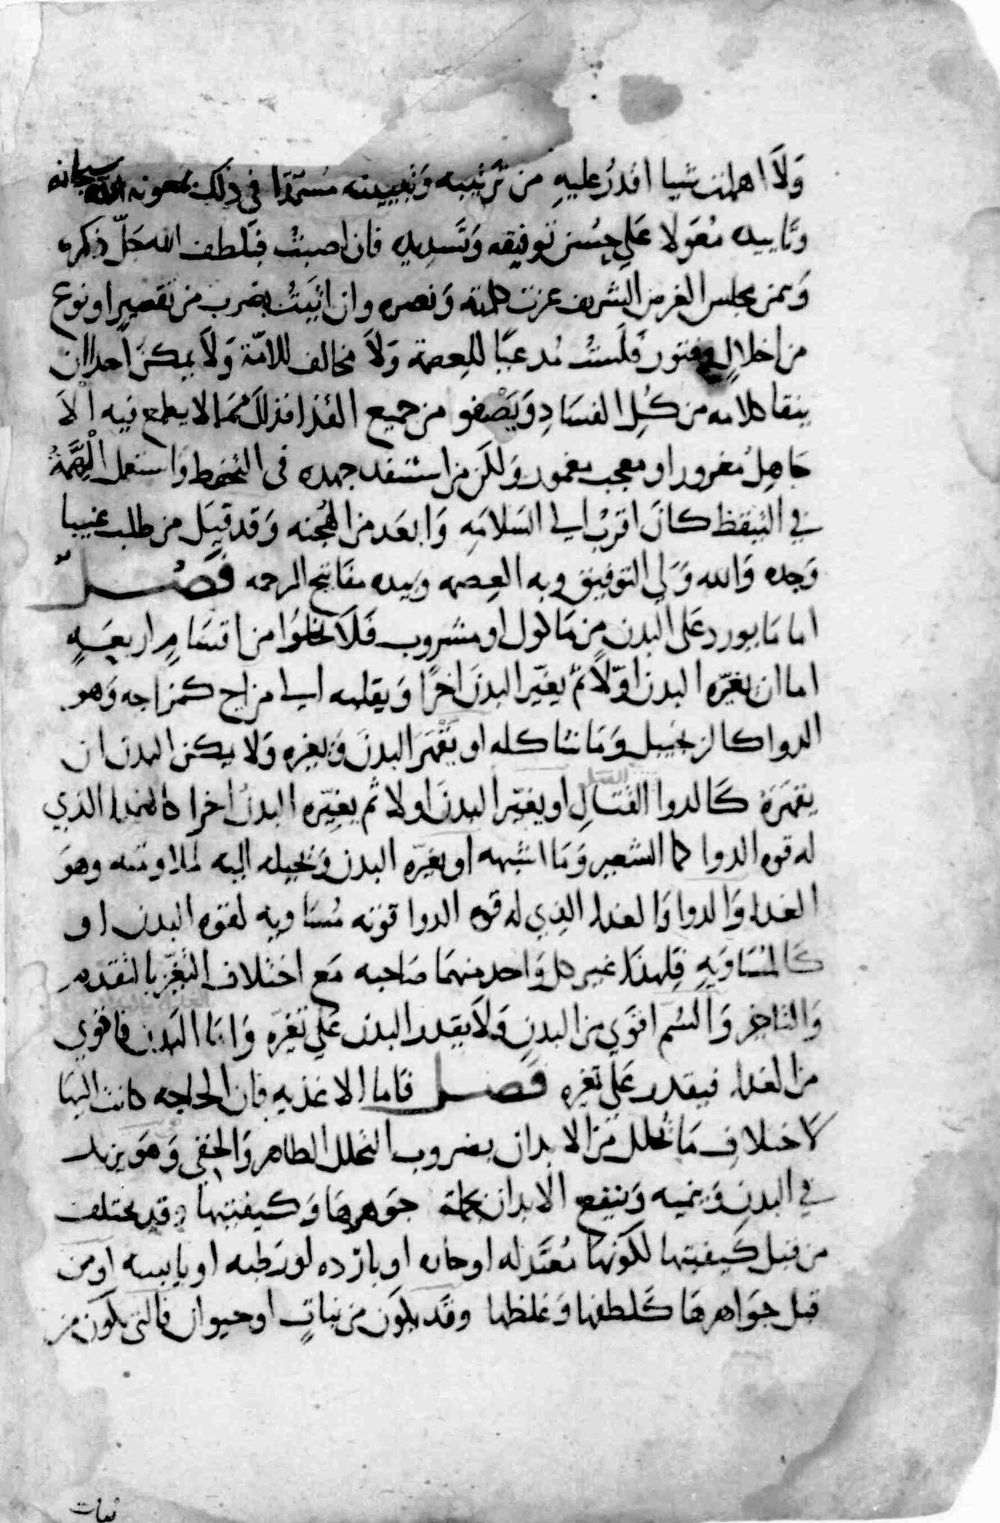 وَلاَ اهملت شيا اقدرُ عليهِ من ترتيبه وَتبيينه مُستمِدًا في ذلك بمعونه الله سبحانه
وتاييده مُعَولا عَلي حِسُن توفيقه وَتَسديده فان اصبتُ فبَلطف الله جَلّ ذكره
وَبمن مجلس الغرض الشريف عزت كلمته وَنصره وان اتيَتُ بضرب من تقصيرٍ او نوع
من اخلالٍ وفتور فلَستُ مُدعيًا للعصمة وَلاَ مخالف للامّة وَلاَ يمكن احدا ان
ينقا كلامه من كُلِ الفسَادِ وَيَصْفو من جميع القذا فذلك مما لا يطمع فيه الاَ
جَاهِلُ مغرور او معجب مغمور وَلكن من استنفد جهده في التحفظ وَاستعمل الهِمَّةُ
في التيقظ كانَ اقربُ الي السَلامَهِ وَابعَد من الهُجنه وَقد قيَل من طلب عيبا
وَجده وَالله وَلي التوفيق وبه العِصمه وبيده مفاتيح الرحمه فَصْــلٌ
اما مَا يورد عَلى البدنِ من مَا كول او مشروب فَلاَ يخلوُا من اقسَامٍ اربعَـهٍ
اما ان يغيّره البدنُ اوّلاً ثُمّ يغيّر البدنَ اخرًا وَيقلبه الي مزاجٍ كمزاجه وَهو
الدوا كالزنجبيل وَمَا شاكله او يَقْهَر البدنَ وَيغيره وَلا يمكن البدن ان
يقهرَهَ كَالدوا القتالِ او يغيّر البدنَ اولا ثم يغيّره البدنُ اخرا كالغذا الذي
له قوه الدوا كما الشعير وَمَا اشبهه او يغيّره البدن وَيحيله اليه لملاومته وهوَ
الغذا وَالدوا وَالغذا الذِي له قوه الدوا قوته مُسَاويه لقوه البدن او
كَالمسَاويَهِ فلِهذَا غير كل وَاحد منهمَا صَاحبه مَع اختلاف التغيّر بالتقدم
وَالتاخر وَالسُم اقوَي من البدنِ وَلاَ يقدر البدن عَلي تغيّره وَاما البَدن فاقوي
من الغذا فيقدر عَلي تغيره فَصــل فَاما الاغذيه فان الحاجه كانت اليها
لاختلافِ مَا تحلل من الابدان بضروب التحلل الظاهر وَالخفي وَهوَ يزيد
في البدن وَينميه وَينفع الابدان بجملة جوَهرهَا وَكيفيتها وقد تختلف
من قبل كيفيتها لكونها مُعتَدله او حاره او بارده او رَطبه او يابسه او من
قبل جوَاهرهَا كلطفها وَغلظها وقَد يكوَن من نباتٍ او حيوان فالتي يكوَن من
نبات